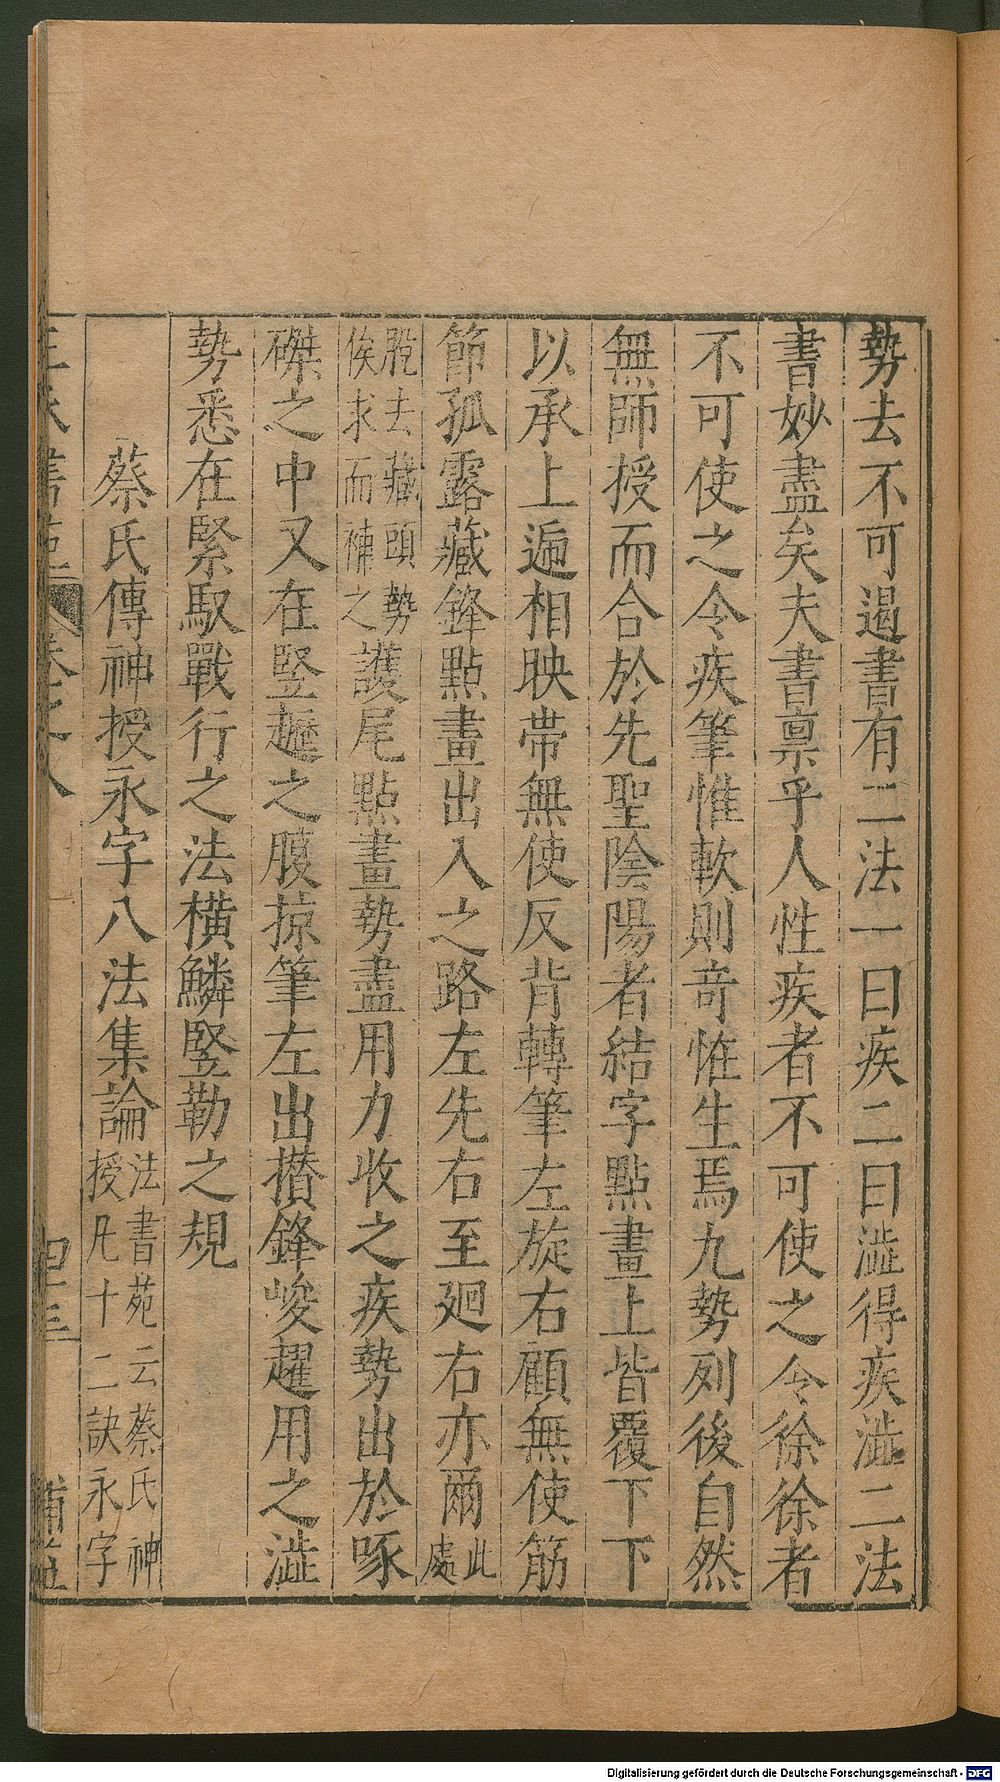 勢去不可遏書有二法一曰疾二曰澁得疾澁二法
書妙盡矣夫書禀乎人性疾者不可使之令徐徐者
不可使之令疾筆惟軟則竒恠生焉九勢列後自然
無師授而合於先聖陰陽者結字點畫上皆覆下下
以承上遞相映帶無使反背轉筆左旋右顧無使筋
節孤露藏鋒點畫出入之路左先右至廻右亦爾此處
脫去藏頭勢
俟求而補之
護尾點畫勢盡用力收之疾勢出於啄
磔之中又在竪趯之腹掠筆左出攢鋒峻趯用之澁
勢悉在緊馭戰行之法橫鱗竪勒之規
蔡氏傳神授永字八法集論
法書苑云蔡氏神
授凡十二訣永字
王氏書苑 卷之八
補益
Digitalisierung gefördert durch die Deutsche Forschungsgemeinschaft - DFG